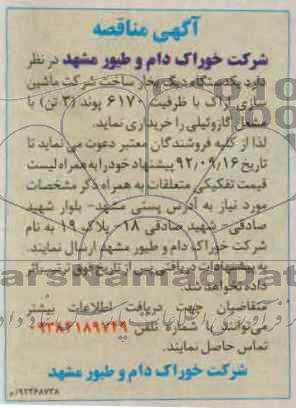 آگهی مناقصه
شرکت خوراک دام و طیور مشهد در نظر
دارد یکدستگاه دیگ بخار ساخت شرکت ماشین
سازی اراک با ظرفیت ۶۱۷۰ پوند (۳ تن) با
مشعل گازوئیلی را خریداری نماید.
لذا از کلیه فروشندگان معتبر دعوت می نماید تا
تاریخ ۹۲،۰۹،۱۶ پیشنهاد خود را به همراه لیست
قیمت تفکیکی متعلقات به همراه ذکر مشخصات
مورد نیاز به آدرس پستی مشهد- بلوار شهید
صادقی- شهید صادقی ۱۸- پلاک ۱۹ به نام
شرکت خوراک دام و طیور مشهد ارسال نمایند.
به پیشنهادات دریافتی پس از تاریخ فوق ترتیب اثر
داده نخواهد شد.
متقاضیان جهت دریافت اطلاعات بیشتر
می‌توانند با شماره تلفن ۰۹۳۸۶۱۸۹۷۴۹
تماس حاصل نمایند.
شرکت خوراک دام و طیور مشهد
/۹۲۳۶۸۷۳۸م